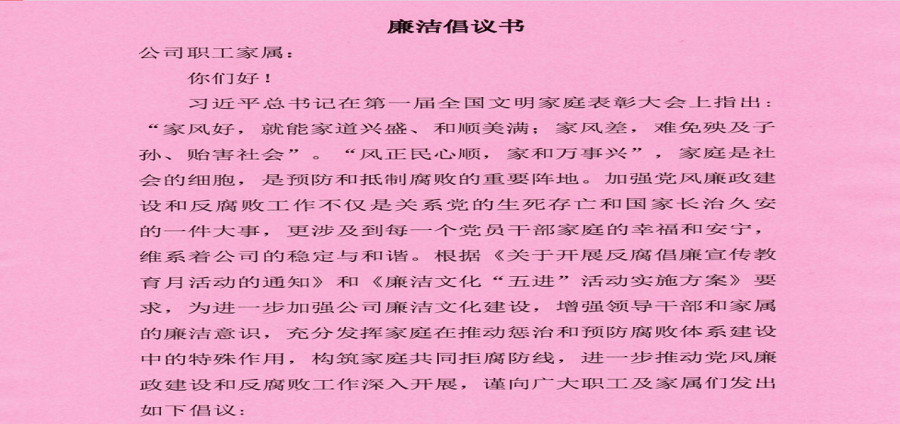 廉洁倡议书
公司职工家属：
你们好！
习近平总书记在第一届全国文明家庭表彰大会上指出：
“家风好，就能家道兴盛、和顺美满；家风差，难免殃及子
孙、贻害社会”。“风正民心顺，家和万事兴”，家庭是社
会的细胞，是预防和抵制腐败的重要阵地。加强党风廉政建
设和反腐败工作不仅是关系党的生死存亡和国家长治久安
的一件大事，更涉及到每一个党员干部家庭的幸福和安宁，
维系着公司的稳定与和谐。根据《关于开展反腐倡廉宣传教
育月活动的通知》和《廉洁文化“五进”活动实施方案》要
求，为进一步加强公司廉洁文化建设，增强领导干部和家属
的廉洁意识，充分发挥家庭在推动惩治和预防腐败体系建设
中的特殊作用，构筑家庭共同拒腐防线，进一步推动党风廉
政建设和反腐败工作深入开展，谨向广大职工及家属们发出
如下倡议：